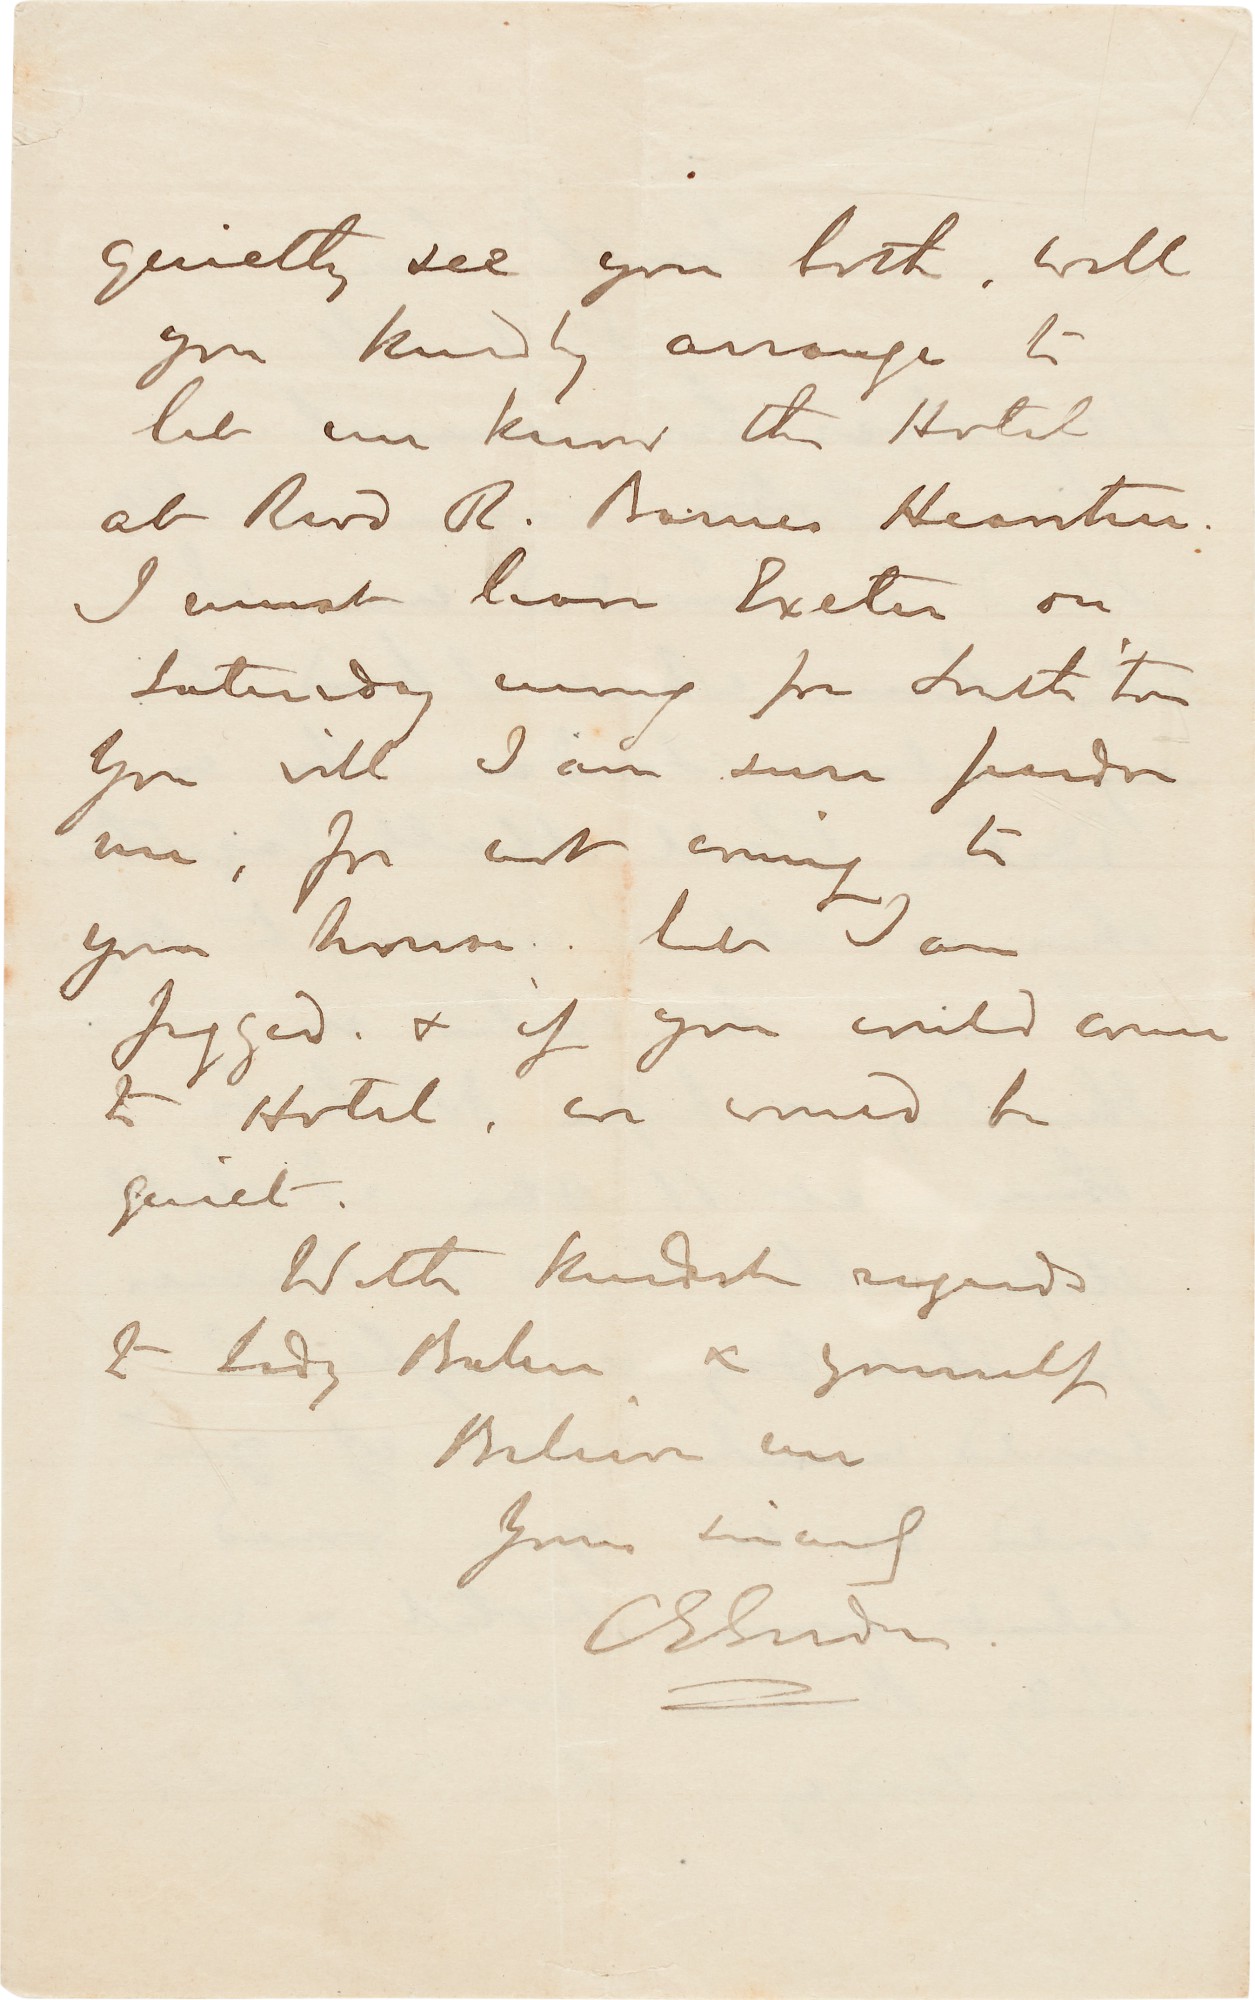 quietly see you both, will
you kindly arrange to
let me know the Hotel
at Revd R. Barnes Heavitree.
I must leave Exeter on
Saturday morng for South'ton
You will I am sure pardon
me, for not coming to
your house. but I am
fagged. & if you could come
to Hotel, we would be
quiet.
With kindest regards
to Lady Baker & yourself
Believe me
Yours sincerely
C E Gordon.